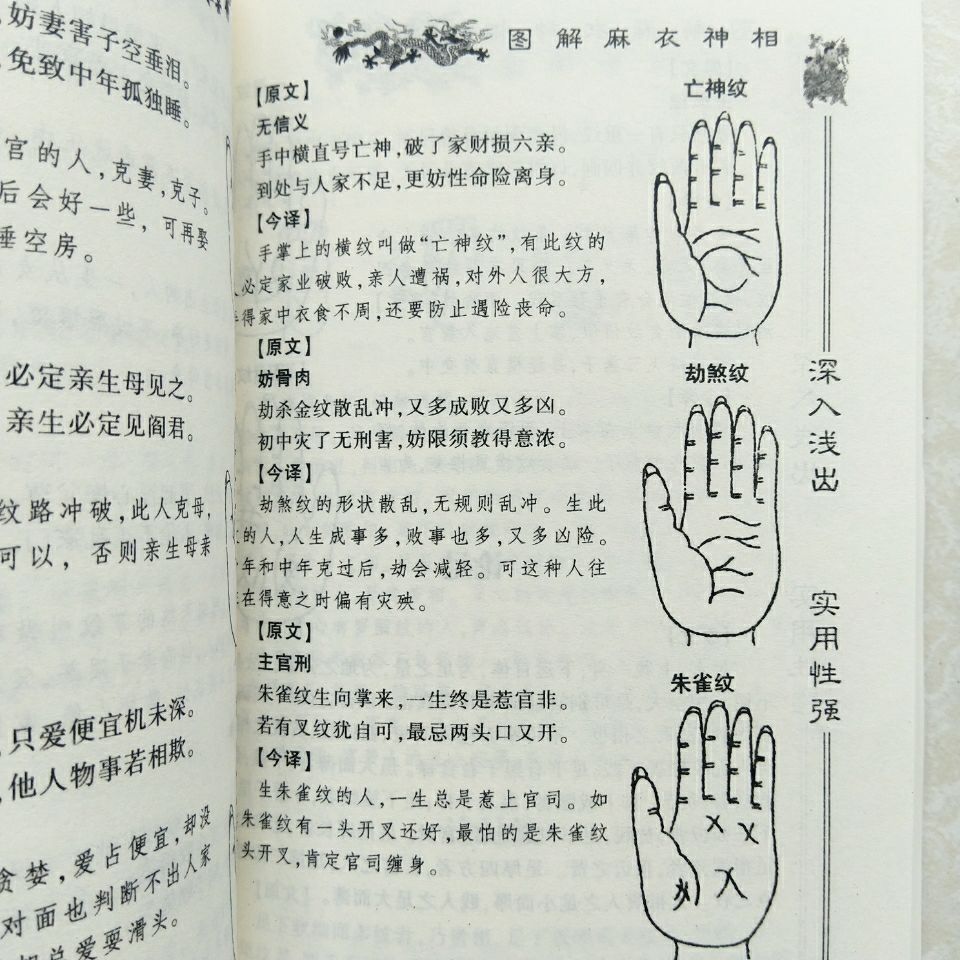 妨妻害子空垂泪。
免致中年孤独睡。
官的人，克妻，克子。
后会好一些，可再娶
垂空房。
必定亲生母见之。
亲生必定见阎君。
纹路冲破，此人克母，
可以，否则亲生母亲
只爱便宜机未深。
他人物事若相欺。
贪婪，爱占便宜，却没
对面也判断不出人家
总爱耍滑头。
图解麻衣神相
【原文】
无信义
手中横直号亡神，破了家财损六亲。
到处与人家不足，更妨性命险离身。
【今译】
手掌上的横纹叫做“亡神纹”，有此纹的
必定家业破败，亲人遭祸，对外人很大方，
得家中衣食不周，还要防止遇险丧命。
【原文】
妨骨肉
劫杀金纹散乱冲，又多成败又多凶。
初中灾了无刑害，妨限须教得意浓。
【今译】
劫煞纹的形状散乱，无规则乱冲。生此
的人，人生成事多，败事也多，又多凶险。
年和中年克过后，劫会减轻。可这种人往
在得意之时偏有灾殃。
【原文】
主官刑
朱雀纹生向掌来，一生终是惹官非。
若有叉纹犹自可，最忌两头口又开。
【今译】
生朱雀纹的人，一生总是惹上官司。如
朱雀纹有一头开叉还好，最怕的是朱雀纹
头开叉，肯定官司缠身。
亡神纹
劫煞纹
朱雀纹
深入浅出
实用性强